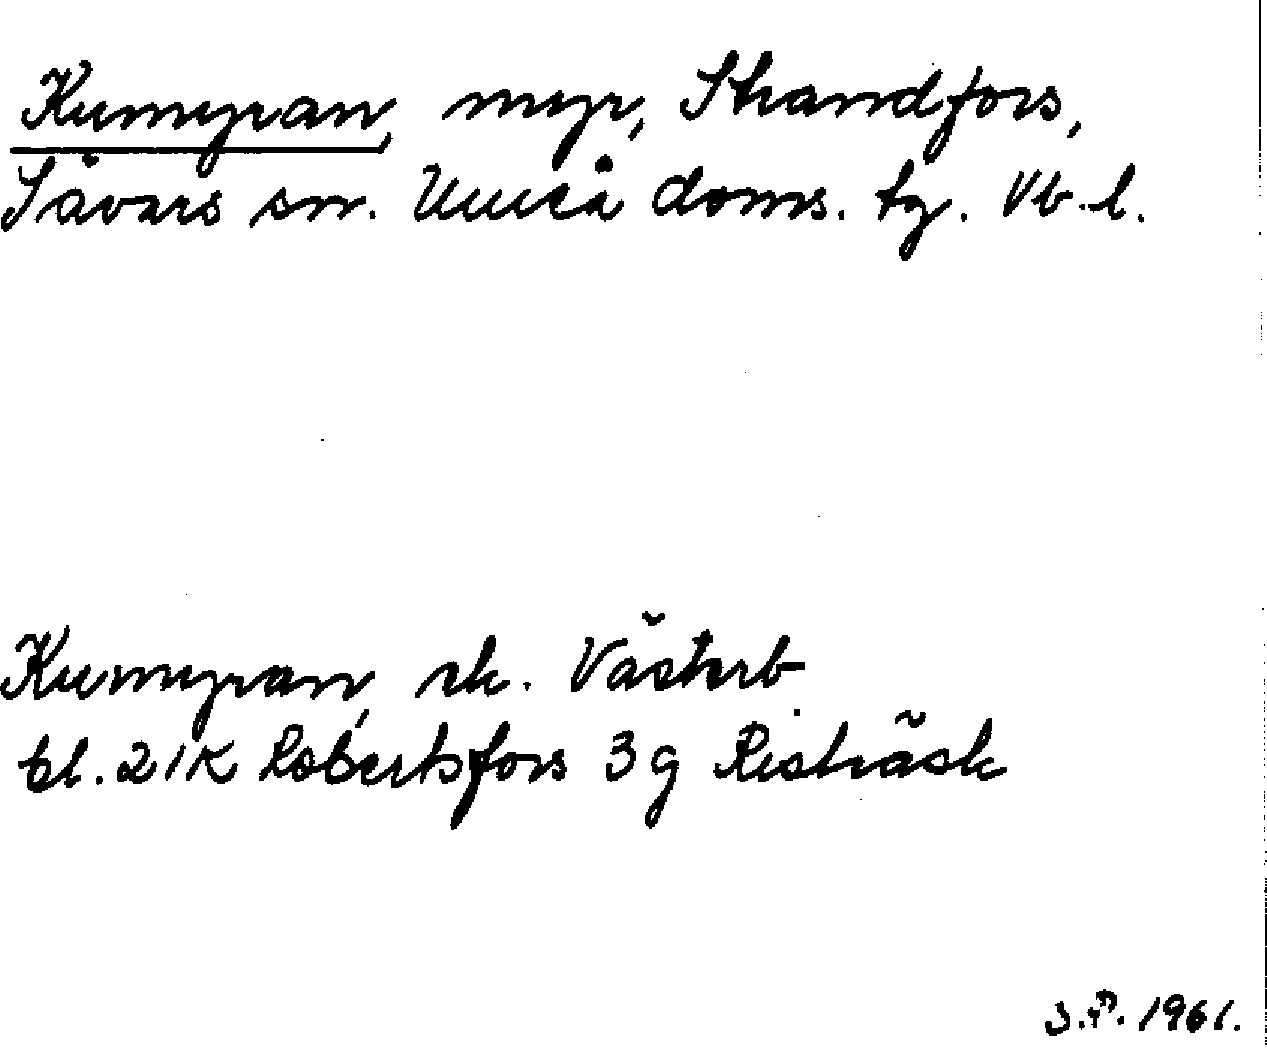 Kumyran, myr, Strandfors,
Sävars sn. Umeå doms. tg. Vb. l.
Kumyran, ek. Västerb
bl. 21K Robertsfors 3g Risträsk
J.P. 1961.